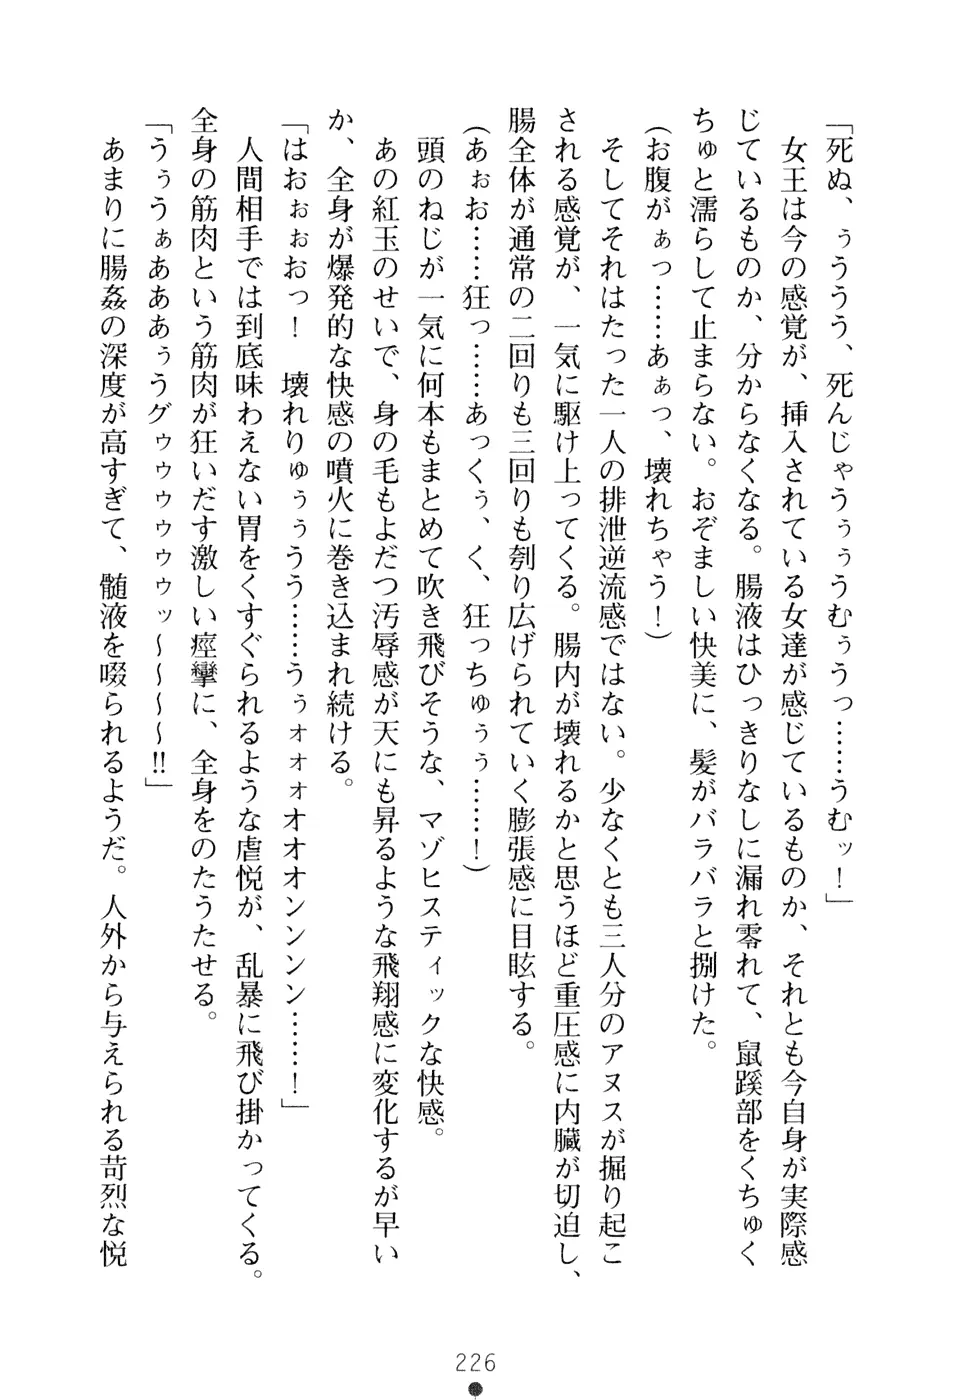 「死ぬ、ぅううう、死んじゃうぅぅうむぅうっ……うむッ！」
　女王は今の感覚が、挿入されている女達が感じているものか、それとも今自身が実際感
じているものか、分からなくなる。腸液はひっきりなしに漏れ零れて、鼠蹊部をくちゅく
ちゅと濡らして止まらない。おぞましい快美に、髪がバラバラと捌けた。
（お腹がぁっ……あぁっ、壊れちゃう！）
　そしてそれはたった一人の排泄逆流感ではない。少なくとも三人分のアヌスが掘り起こ
される感覚が、一気に駆け上ってくる。腸内が壊れるかと思うほど重圧感に内臓が切迫し、
腸全体が通常の二回りも三回りも刳り広げられていく膨張感に目眩する。
（あぉお……狂っ……あっくぅ、く、狂っちゅぅぅ……！）
　頭のねじが一気に何本もまとめて吹き飛びそうな、マゾヒスティックな快感。
　あの紅玉のせいで、身の毛もよだつ汚辱感が天にも昇るような飛翔感に変化するが早い
か、全身が爆発的な快感の噴火に巻き込まれ続ける。
「はおぉぉおっ！　壊れりゅぅぅうう……うぅォォォオオオンンンン……！」
　人間相手では到底味わえない胃をくすぐられるような虐悦が、乱暴に飛び掛かってくる。
全身の筋肉という筋肉が狂いだす激しい痙攣に、全身をのたうたせる。
「うぅうぁあああぅうグゥゥゥゥゥッ～～～～!!」
　あまりに腸姦の深度が高すぎて、髄液を啜られるようだ。人外から与えられる苛烈な悦
226